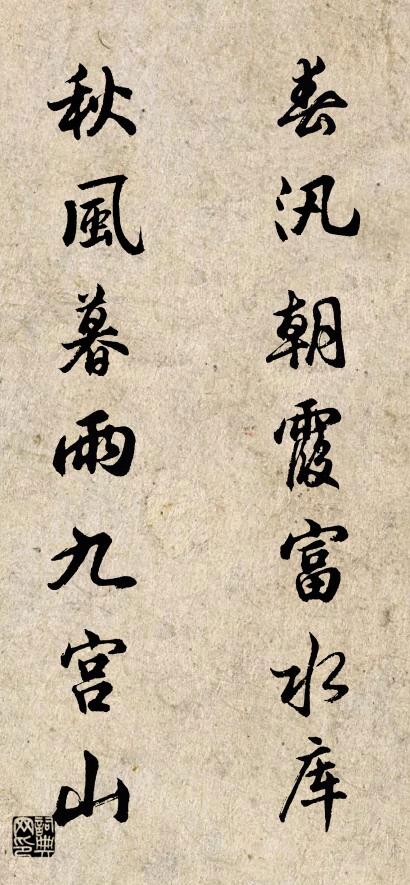 春汛朝霞富水库
秋風暮雨九宫山
詞典网印